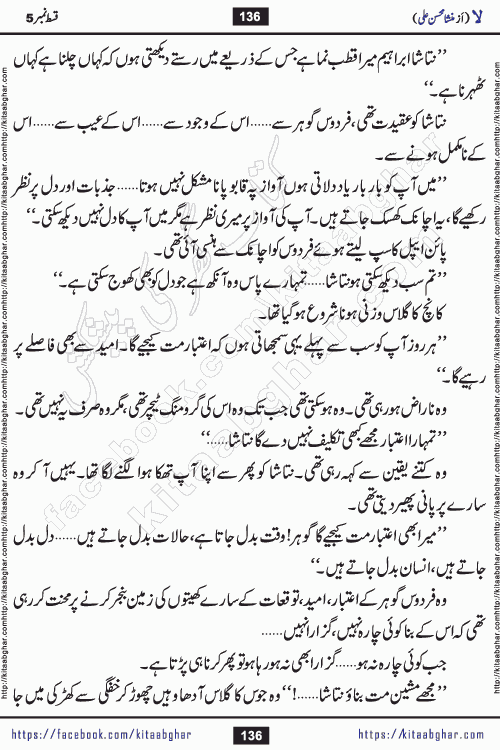 لا (از منشا محسن علی)
136
قسط نمبر 5
’’نتاشا ابراہیم میرا قطب نما ہے جس کے ذریعے میں رستے دیکھتی ہوں کہ کہاں چلنا ہے کہاں
ٹھہرنا ہے۔‘‘
نتاشا کو عقیدت تھی، فردوس گوہر سے...... اس کے وجود سے...... اس کے عیب سے...... اس
کے نامکمل ہونے سے۔
’’میں آپ کو بار بار یاد دلاتی ہوں آواز پہ قابو پانا مشکل نہیں ہوتا...... جذبات اور دل پر نظر
رکھیے گا، یہ اچانک کھسک جاتے ہیں۔ آپ کی آواز پر میری نظر ہے مگر میں آپ کا دل نہیں دیکھ سکتی۔‘‘
پائن ایپل کا سپ لیتے ہوئے فردوس کو اچانک سے ہنسی آئی تھی۔
’’تم سب دیکھ سکتی ہو نتاشا...... تمہارے پاس وہ آنکھ ہے جو دل کو بھی کھوج سکتی ہے۔‘‘
کانچ کا گلاس وزنی ہونا شروع ہو گیا تھا۔
’’ہر روز آپ کو سب سے پہلے یہی سمجھاتی ہوں کہ اعتبار مت کیجیے گا۔ امید سے بھی فاصلے پر
رہیے گا۔‘‘
وہ ناراض ہو رہی تھی۔ وہ ہو سکتی تھی جب تک وہ اس کی گرومنگ ٹیچر تھی، مگر وہ صرف یہ نہیں تھی۔
’’تمہارا اعتبار مجھے کبھی تکلیف نہیں دے گا نتاشا......‘‘
وہ کتنے یقین سے کہہ رہی تھی۔ نتاشا کو پھر سے اپنا آپ تھکا ہوا لگنے لگا تھا۔ یہیں آ کر وہ
سارے پر پانی پھیر دیتی تھی۔
’’میرا بھی اعتبار مت کیجیے گا گوہر! وقت بدل جاتا ہے، حالات بدل جاتے ہیں...... دل بدل
جاتے ہیں، انسان بدل جاتے ہیں۔‘‘
وہ فردوس گوہر کے اعتبار، امید، توقعات کے سارے کھیتوں کی زمین بنجر کرنے پر محنت کر رہی
تھی کہ اس کے بنا کوئی چارہ نہیں، گزارا نہیں......
جب کوئی چارہ نہ ہو...... گزارا بھی نہ ہو رہا ہو تو پھر کرنا ہی پڑتا ہے۔
’’مجھے مشین مت بناؤ نتاشا......!‘‘ وہ جوس کا گلاس آدھا وہیں چھوڑ کر خفگی سے کھڑکی میں جا
https://facebook.com/kitaabghar
136
https://kitaabghar.com
http://kitaabghar.com
http://kitaabghar.com
کتاب گھر کی پیشکش
facebook.com/kitaabghar
kitaabghar.com